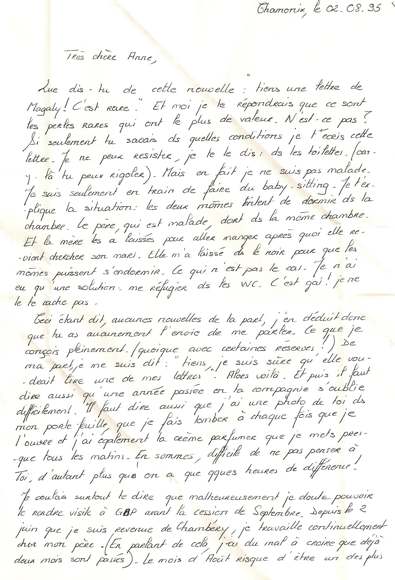 Chamonix, le 02.08.95
Très chère Anne,
Que dis-tu de cette nouvelle : "tiens une lettre de
Magaly ! C'est rare." Et moi je te répondrais que ce sont
les perles rares qui ont le plus de valeur. N'est-ce pas ?
Si seulement tu savais ds quelles conditions je t'écris cette
lettre. Je ne peux resister, je te le dis : ds les toilettes. (car-
y. là tu peux rigoler). Mais en fait je ne suis pas malade.
Je suis seulement en train de faire du baby-sitting. Je t'ex-
plique la situation : les deux mômes tentent de dormir ds la
chambre. Le père, qui est malade, dort ds la même chambre.
Et la mère les a laissés pour aller manger après quoi elle re-
-vient chercher son mari. Elle m'a laissé ds le noir pour que les
mômes puissent s'endormir. Ce qui n'est pas le cas. Je n'ai
eu qu'une solution : me réfugier ds les WC. C'est gai ! je ne
te le cache pas.
Ceci étant dit, aucunes nouvelles de ta part, j'en déduit donc
que tu as aucunement l'envie de me parler. Ce que je
conçois pleinement. (quoique avec certaines réserves !) De
ma part, je me suis dit : "tiens, je suis sûre qu'elle vou-
-drait lire une de mes lettres". Alors voilà. Et puis il faut
dire aussi qu'une année passée en ta compagnie s'oublie
difficilement. Il faut dire aussi que j'ai une photo de toi ds
mon porte feuille, que je fais tomber à chaque fois que je
l'ouvre et j'ai également la crème parfumée que je mets pres-
-que tous les matins. En sommes, difficile de ne pas penser à
Toi, d'autant plus qu'on a que qques heures de différence !
Je voulais surtout te dire que malheureusement je doute pouvoir
te rendre visite à GAP avant la cession de Septembre. Depuis le 2
juin que je suis revenue de Chambéry, je travaille continuellement
chez mon père. (En parlant de cela, j'ai du mal à croire que déjà
deux mois sont passés). Le mois d'Août risque d'être un des plus